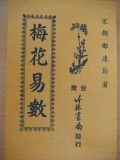 宋朝邵康節著
梅花易數
竹林書局印行